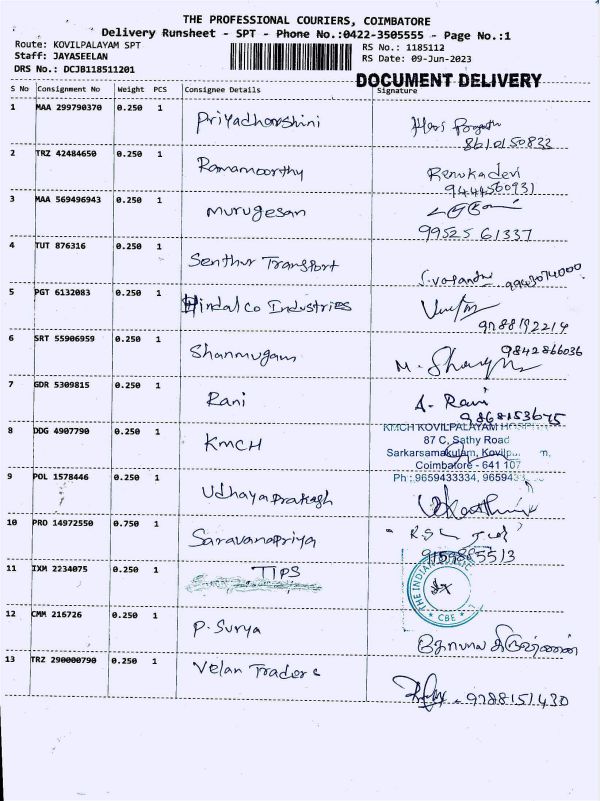 THE PROFESSIONAL COURIERS, COIMBATORE
Delivery Runsheet - SPT - Phone No.:0422-3505555 - Page No.:1
Route: KOVILPALAYAM SPT
RS No.: 1185112
Staff: JAYASEELAN
RS Date: 09-Jun-2023
DRS No.: DCJB118511201
DOCUMENT DELIVERY
S No Consignment No Weight PCS Consignee Details Signature
1 MAA 299790370 0.250 1 Priyadharshini
8610150833
2 TRZ 42484650 0.250 1 Ramamoorthy Renukadevi
9444560931
3 MAA 569496943 0.250 1 Murugesan
99525 61337
4 TUT 876316 0.250 1 Senthur Transport
9943074000
5 PGT 6132083 0.250 1 Hindalco Industries
9788192214
6 SRT 55906959 0.250 1 Shanmugam 9842866036
M.
7 GDR 5309815 0.250 1 Rani A. Rani
9868153675
8 DDG 4907790 0.250 1 KMCH
KMCH KOVILPALAYAM HOSPITAL
87 C, Sathy Road
Sarkarsamakulam,
Coimbatore - 641 107
Ph :9659433334,
9 POL 1578446 0.250 1 Udhayaprakash
10 PRO 14972550 0.750 1 Saravanapriya
9159885513
11 IXM 2234075 0.250 1 TIPS
THE INDIAN
* CBE *
12 CMM 216726 0.250 1 P. Surya
13 TRZ 290000790 0.250 1 Velan Traders
9788151430